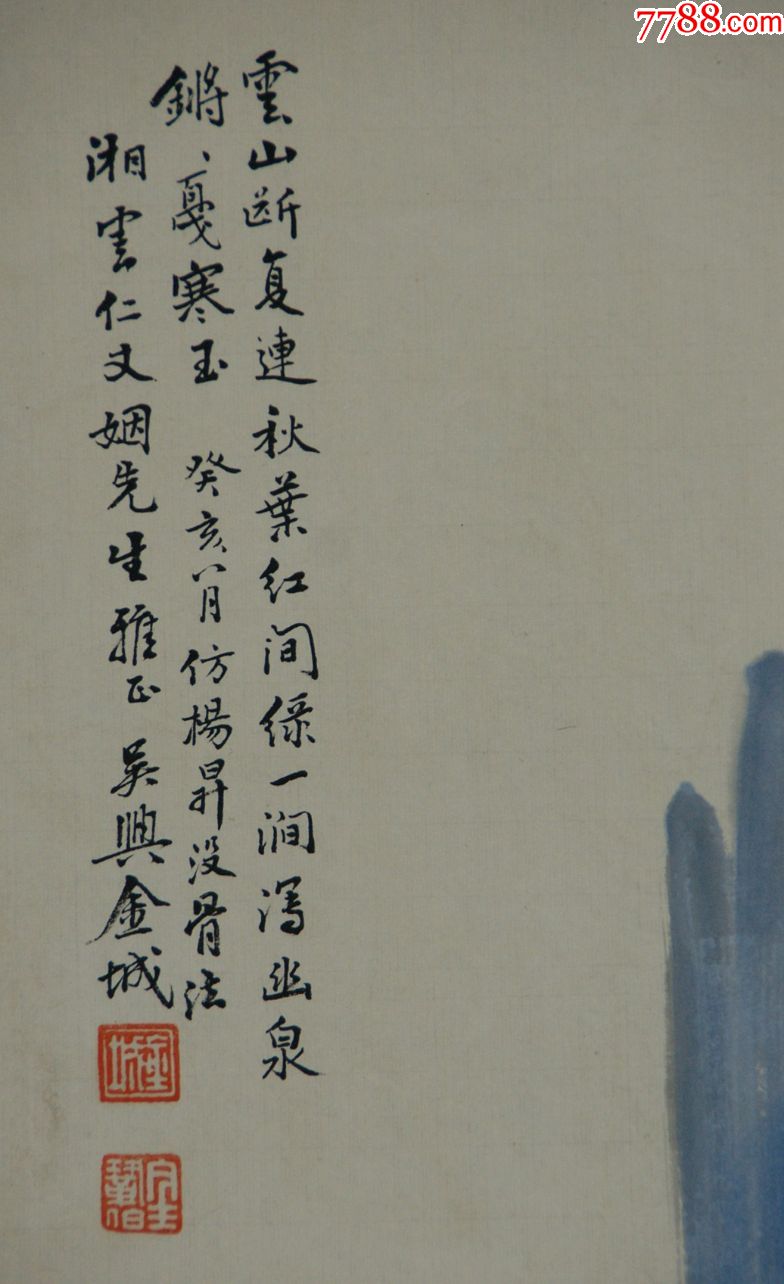 7788.com
雲山断复連秋葉红间绿一澗瀉幽泉
鏘、戛寒玉 癸亥八月仿楊昇没骨法
湘雲仁丈姻先生雅正 吴興金城
金城